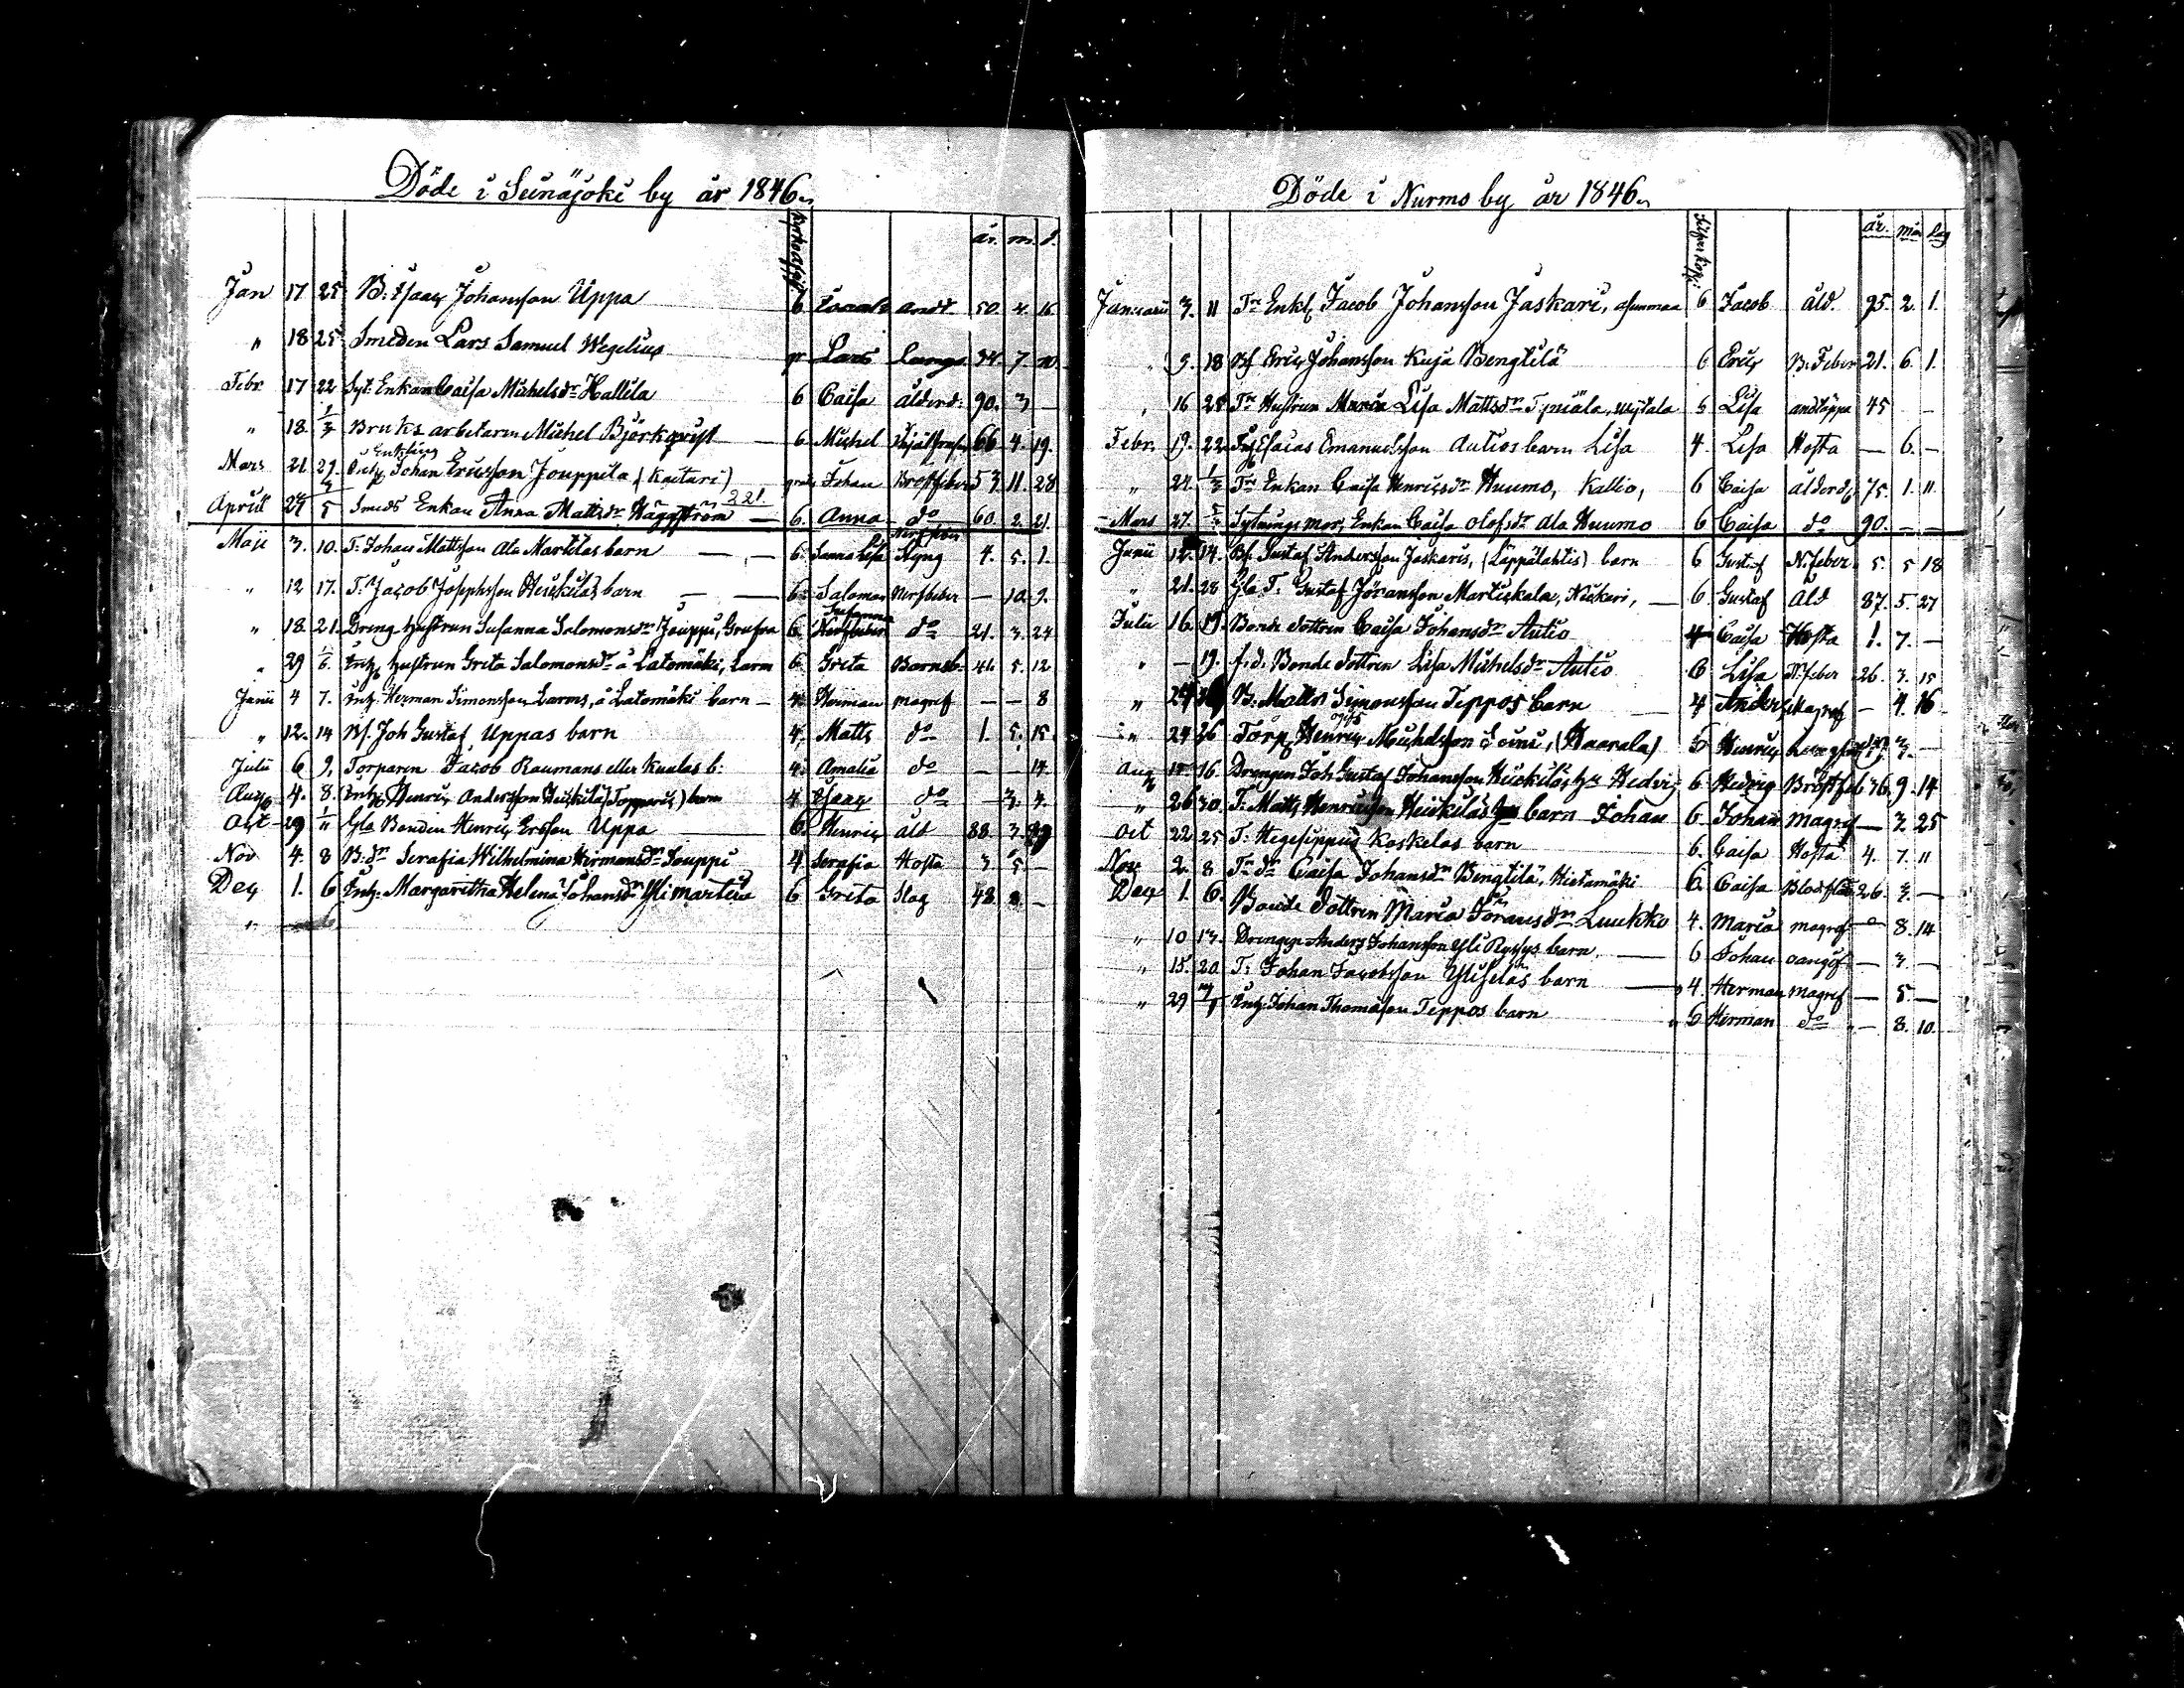 Döde i Seinäjoki by år 1846
år. m. d.
Jan 17 25 B. Isaac Johansson Uppa 6 andt 50. 4. 16
" 18 25 Smeden Lars Samuel Wegelius gr Lars 7.
Febr. 17 22 Syt. Enkan Caisa Michelsdr Hallila 6 Caisa ålderd. 90. 3 —
" 18. 1/3 Bruks arbetaren Michel Björkqvist — 6. Michel 66 4. 19.
Enkling
Mars 21. 29. Johan Ericsson Jouppila (Kaitari) Johan Bröstfeber 53. 11. 28
221.
Aprill 24 Smeds Enkan Anna Mattsdr Häggström — 6. Anna do 60. 2. 21.
Maji 3. 10. T. Johan Mattsson Ala Martilas barn — — 6. Sanna Lisa 4. 5. 1.
" 12 17. T. Jacob Josephsson Heickiläs barn — — 6. Salomon Nerffeber — 10. 9.
Susanna
" 18. 21. Dräng hustrun Susanna Salomonsdr Jouppi, 6. do 21. 3. 24
" 29 1/6. Inh. hustrun Greta Salomonsdr å Latomäki, Larm 6. Greta Barnsb. 5. 12
Junii 4 7. Inh. Herman Simonsson Larms, å Latomäki barn — 4. Herman magref — — 8
" 12. 14 Bs. Joh Gustaf Uppas barn 4. Matts do 1. 5. 15
Julii 6 9. Torparen Jacob Raumans eller Kualas b: 4. Amalia do — — 14.
Aug 4. 8. Inh. Henric Andersson Heickilä (Topparis) barn 4 Isaac do — 3. 4.
Oct 29 1/11 Gla Bonden Henric Ersson Uppa — 6. Henric åld 88. 3. 29
Nov 4. 8 B. dr Serafia Wilhelmina Hermansdr Jouppi 4 Serafia Hosta 3 5. —
Dec 1. 6 Inh. Margaretha Helena Johansdr Ylimartila 6 Greta Slag 48. —
"
Döde i Nurmo by år 1846
år. mån dag
Januarii 3. 11 Trp Enkl. Jacob Johansson Jaskari, asunmaa 6 Jacob åld. 95. 2. 1.
" 9. 18 Bs Eric Johansson Kuja Bengtilä 6 Eric B. Feber 21. 6. 1.
" 16 25 Tr Hustrun Maria Lisa Mattsdr 6 Lisa andtäppa 45 — —
Febr. 19. 22 Inh Esaias Emanuelsson Autios barn Lisa 4. Lisa Hosta — 6. —
" 24. 1/3 Tr Enkan Caisa Henricsdr Huumo, Kallio, 6 Caisa ålderd. 75. 1. 11
Mars 27. Sytnings mor, Enkan Caisa Olofsdr Ala Huumo 6 Caisa do 90. — —
Junii 14. Bs. Gustaf Andersson Jaskaris, (Läppälahtis) barn 6 Gustaf N. feber 5. 5 18
" 21. 28 Gla T. Gustaf Jöransson Martickala, Nickari, — 6 Gustaf Åld 87. 5. 27
Julii 16. 19. Bonde dottren Caisa Johansdr Autio 4 Caisa Hosta 1. 7. —
" — 19. f. d. Bonde dottren Lisa Michelsdr Autio 6 Lisa N. feber 26. 3. 15
" 24 B. Matts Simonsson Teppos barn 4 Anders Magref — 4. 16
" 24 26 Torp. Henric Michelsson Soini, (Haarala) Henric 3. —
Aug 15. 16. Drengen Joh Gustaf Johansson Heickiläs, hu Hedvig 6. Hedvig Bröstfeb 36. 9. 14
" 26 30. T. Matts Henricsson Heickiläs barn Johan 6. Johan Magref — 3. 25
Oct 22. 25 T. Hegesippus Koskelas barn 6. Caisa Hosta 4. 7. 11
Nov 2. 8 Tr dr Caisa Johansdr Bengtilä, Hietamäki 6. Caisa 26. 3. —
Dec 1. 6. Bonde dottren Maria Jöransdr Luukko 4. Maria magref — 8. 14
" 10 13. Drengen Anders Johansson Yli Ryssys barn — 6 Johan oangif — 3. —
" 15. 20. T. Johan Jacobsson Yliselas barn — 4. Herman magref — 5. —
" 29 Inh. Johan Thomasson Teppos barn 6 Herman do — 8. 10.